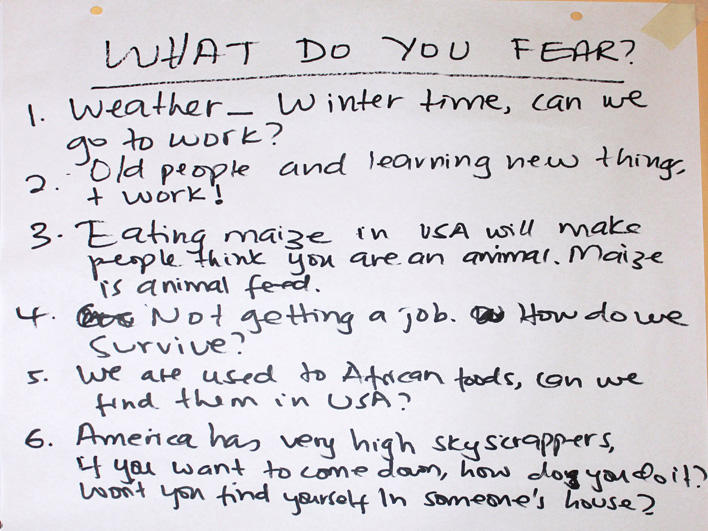 WHAT DO YOU FEAR?
1. Weather – Winter time, can we
go to work?
2. Old people and learning new things,
+ work!
3. Eating maize in USA will make
people think you are an animal. Maize
is animal feed.
4. Not getting a job. How do we
survive?
5. We are used to African foods, can we
find them in USA?
6. America has very high skyscrappers,
if you want to come down, how do you do it?
Won't you find yourself In someone's house?